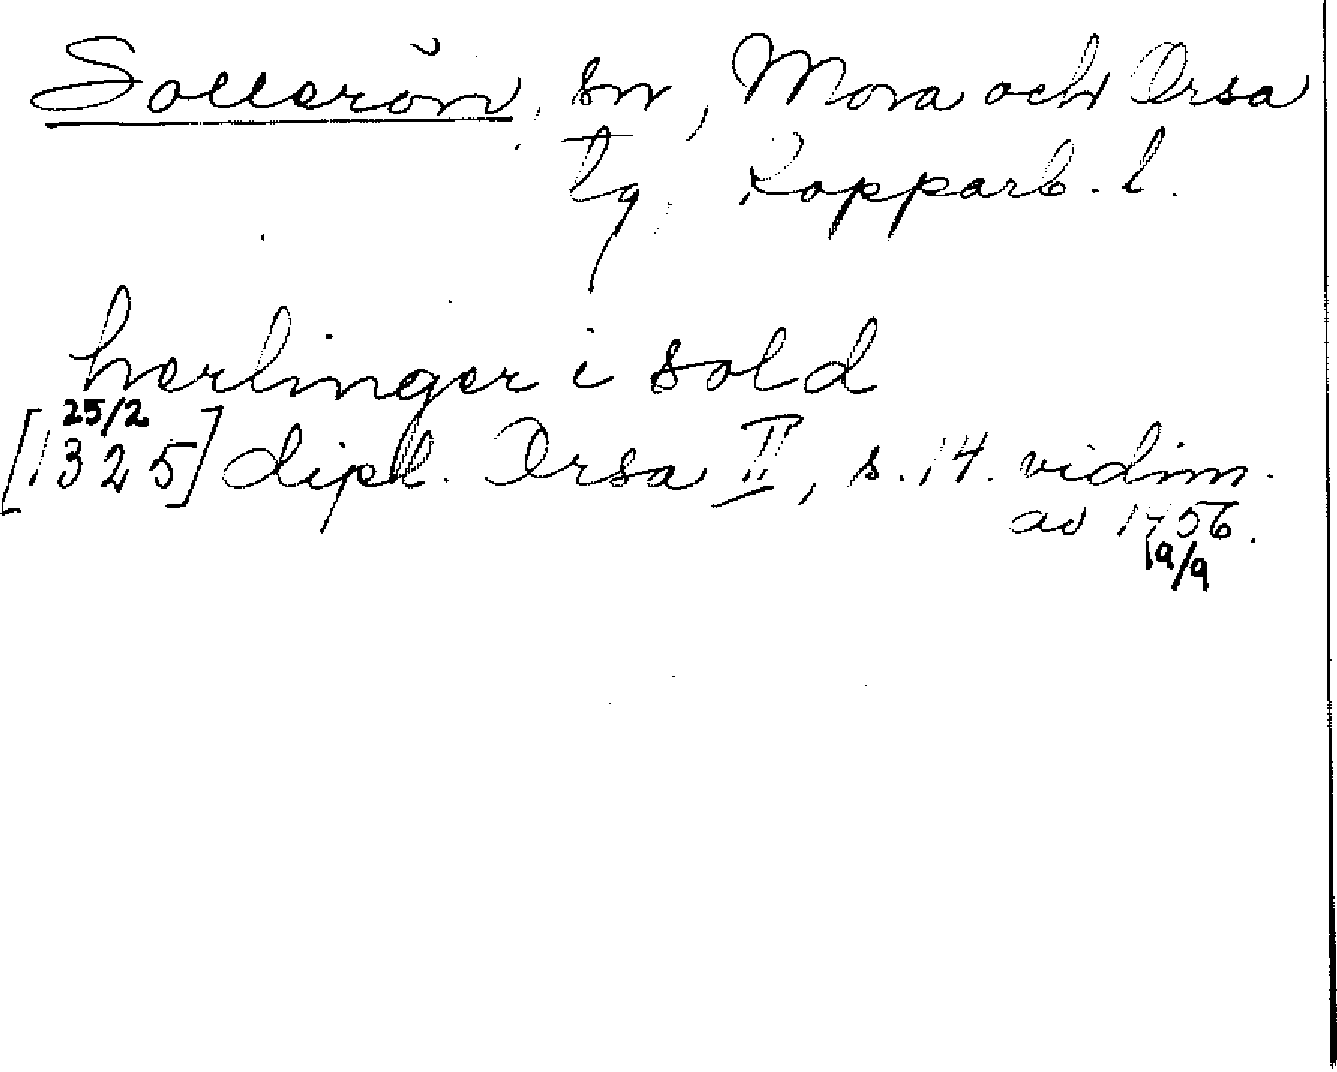 Sollerön, sn, Mora och Orsa
tg, Kopparb. l.
herlinger i sold
25/2
[1325] dipl. Orsa II, s. 14. vidim.
av 1456.
19/9